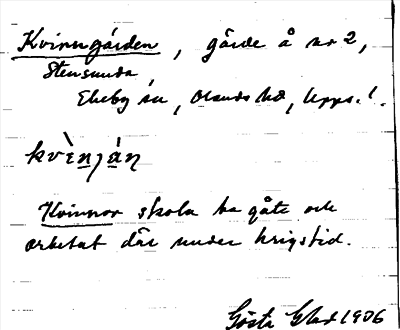 Kvinngården, gärde å nr 2,
Stensunda,
Ekeby sn, Olands hd, Upps.l.
kvènján
Kvinnor skola ha gått och
arbetat där under krigstid.
Gösta 1906